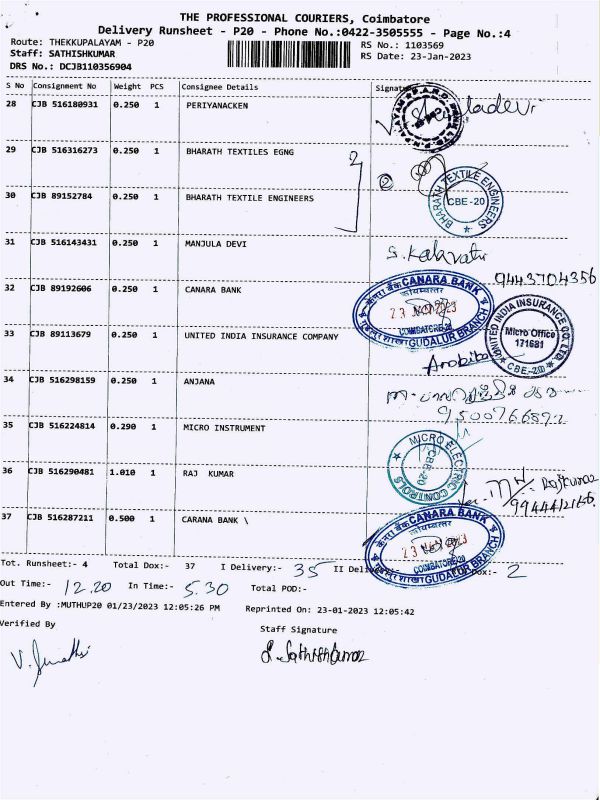 THE PROFESSIONAL COURIERS, Coimbatore
Delivery Runsheet - P20 - Phone No.:0422-3505555 - Page No.:4
Route: THEKKUPALAYAM - P20
RS No.: 1103569
Staff: SATHISHKUMAR
RS Date: 23-Jan-2023
DRS No.: DCJB110356904
S No Consignment No Weight PCS Consignee Details Signature
28 CJB 516180931 0.250 1 PERIYANACKEN
29 CJB 516316273 0.250 1 BHARATH TEXTILES EGNG
2
2
BHARATH TEXTILE ENGINEERS
CBE-20
30 CJB 89152784 0.250 1 BHARATH TEXTILE ENGINEERS
31 CJB 516143431 0.250 1 MANJULA DEVI
S. Kalavathi
9443704356
32 CJB 89192606 0.250 1 CANARA BANK
केनरा बैंक CANARA BANK
कोयम्बत्तूर
COIMBATORE-20
GUDALUR BRANCH
33 CJB 89113679 0.250 1 UNITED INDIA INSURANCE COMPANY
UNITED INDIA INSURANCE CO. LTD.
Micro Office
171681
CBE.-20
34 CJB 516298159 0.250 1 ANJANA
35 CJB 516224814 0.290 1 MICRO INSTRUMENT
MICRO ELECTRIC CONTROLS
CBE-20
36 CJB 516290481 1.010 1 RAJ KUMAR
Rajkumar
37 CJB 516287211 0.500 1 CARANA BANK \
केनरा बैंक CANARA BANK
कोयम्बत्तूर
COIMBATORE-20
GUDALUR BRANCH
Tot. Runsheet:- 4 Total Dox:- 37 I Delivery:- 35 2
Out Time:- 12.20 In Time:- 5.30 Total POD:-
Entered By :MUTHUP20 01/23/2023 12:05:26 PM Reprinted On: 23-01-2023 12:05:42
Verified By
Staff Signature
S. Sathishkumar